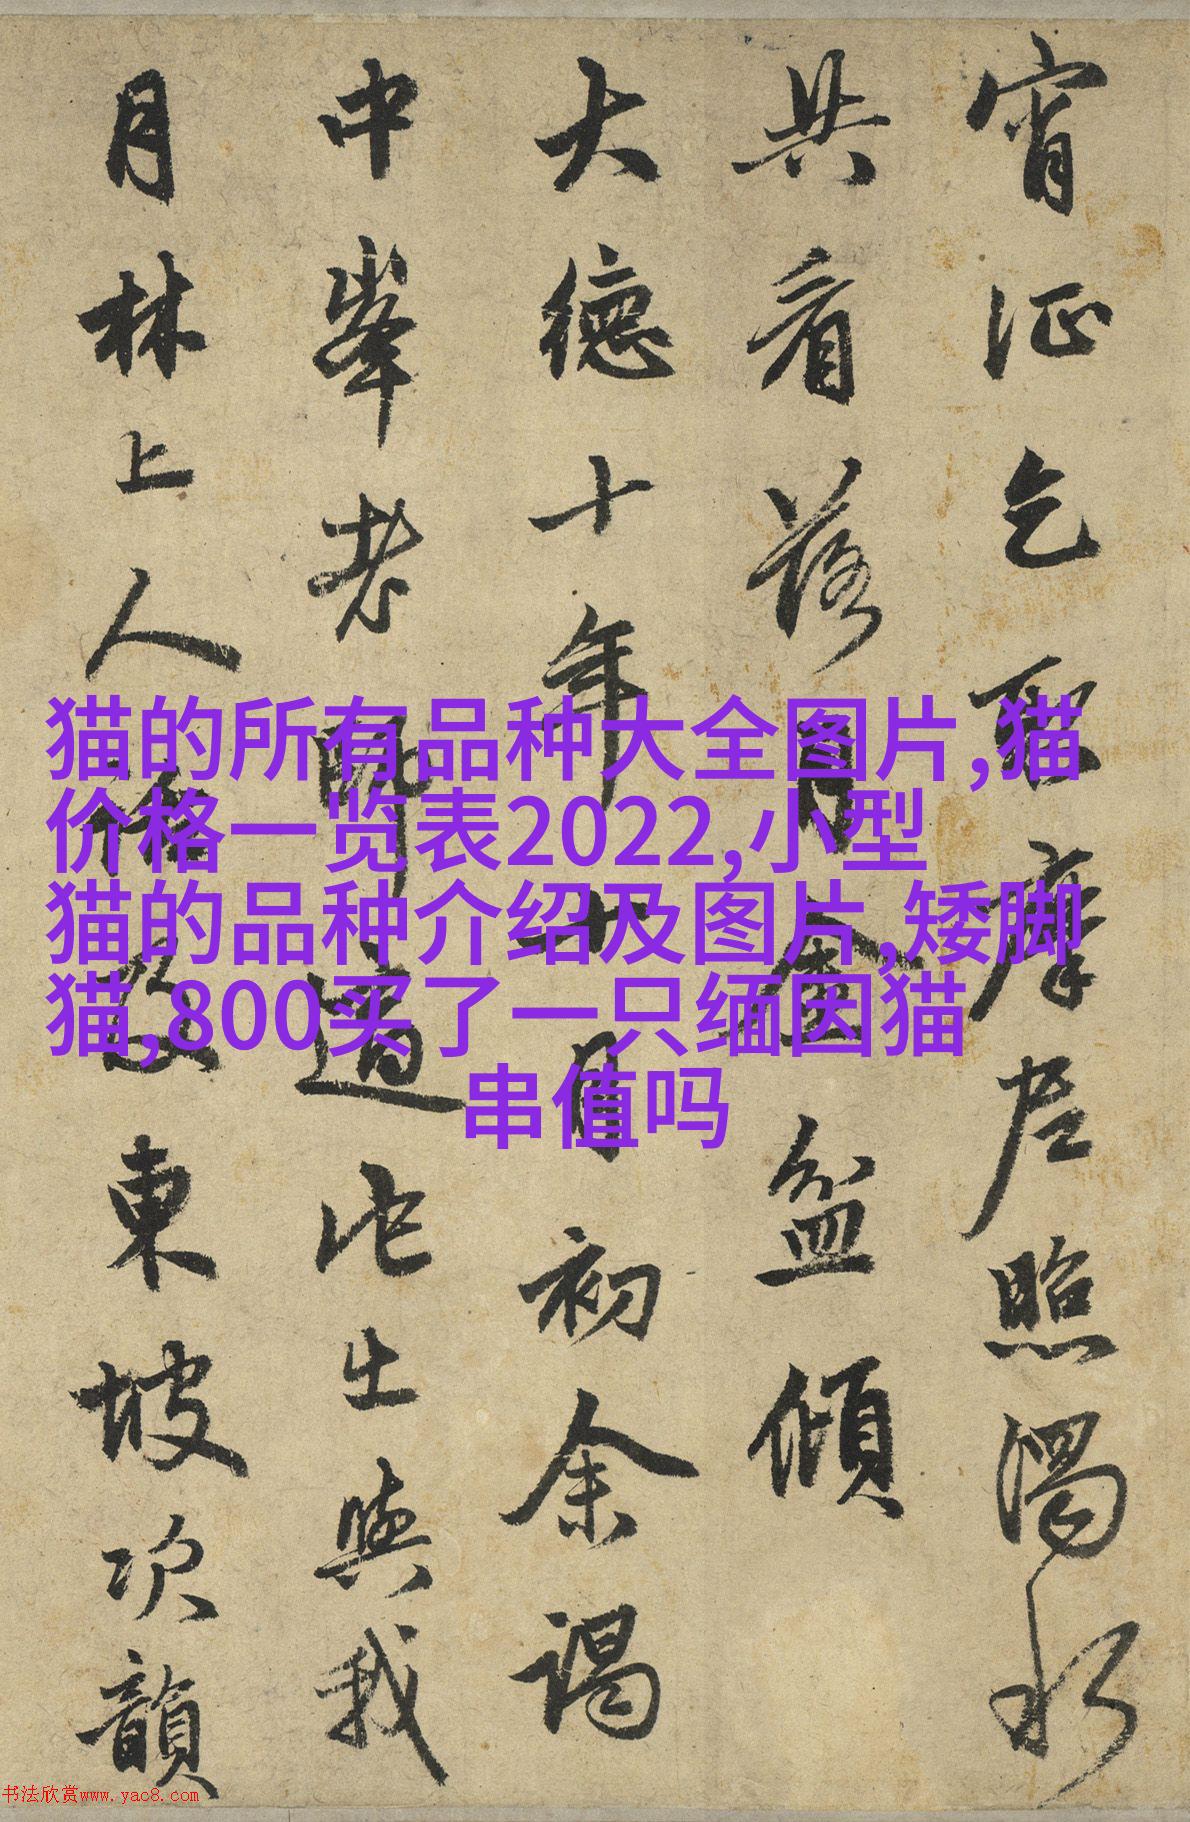 宵征乞取摩尼照濁水
共看落月金盆傾
大德十年十月初余謁
中峯老師適他出與我
月林上人東坡次韻
猫的所有品种大全图片,猫
价格一览表2022,小型
猫的品种介绍及图片,矮脚
猫,800买了一只缅因猫
串值吗
书法欣赏www.yac8.com